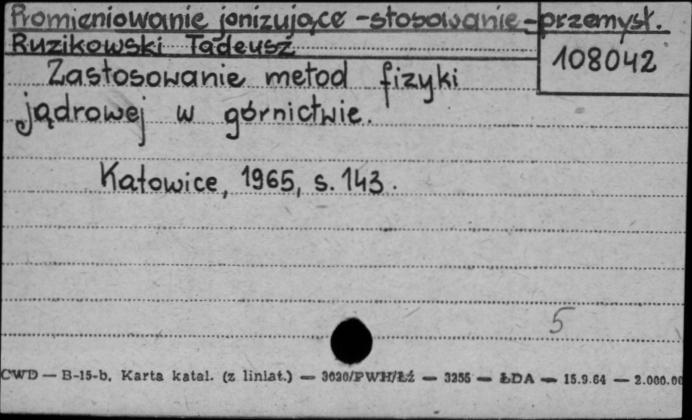 Promieniowanie jonizujące - stosowanie - przemysł.
Ruzikowski Tadeusz
108042
Zastosowanie metod fizyki
jądrowej w górnictwie.
Katowice, 1965, s. 143.
5
CWD — B-15-b. Karta katal. (z liniat.) — 3020/PWH/Łź — 3255 — ŁDA — 15.9.64 — 2.000.00